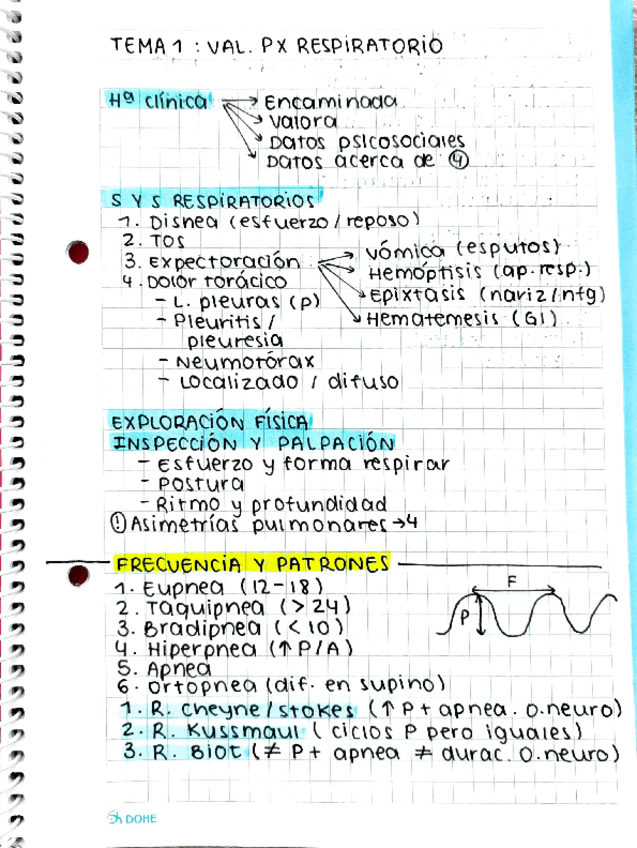 TEMA 1 : VAL. PX RESPIRATORIO
Hª clínica → Encaminada
Valora
Datos psicosociales
Datos acerca de ④
S Y S RESPIRATORIOS
1. Disnea (esfuerzo / reposo)
2. Tos
3. Expectoración → Vómica (esputos)
Hemóptisis (ap. resp.)
Epixtasis (nariz / nfg)
Hematemesis (GI)
4. Dolor torácico
- L. pleuras (P)
- Pleuritis /
pleuresia
- Neumotórax
- Localizado / difuso
EXPLORACIÓN FÍSICA
INSPECCIÓN Y PALPACIÓN
- Esfuerzo y forma respirar
- Postura
- Ritmo y profundidad
! Asimetrías pulmonares → 4
FRECUENCIA Y PATRONES
1. Eupnea (12-18)
2. Taquipnea (> 24)
3. Bradipnea (< 10)
4. Hiperpnea (↑ P/A)
5. Apnea
6. Ortopnea (dif. en supino)
F
P
1. R. Cheyne / Stokes (↑ P + apnea. D. neuro)
2. R. Kussmaul ( ciclos P pero iguales)
3. R. Biot (≠ P + apnea ≠ durac. D. neuro)
DOHE